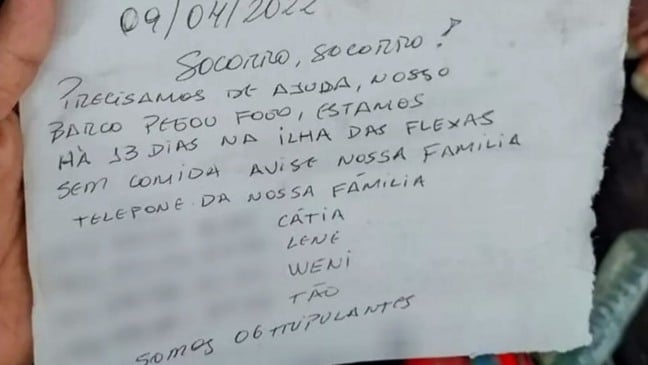 09/04/2022
SOCORRO, SOCORRO!
PRECISAMOS DE AJUDA, NOSSO
BARCO PEGOU FOGO, ESTAMOS
HÀ 13 DIAS NA ILHA DAS FLEXAS
SEM COMIDA AVISE NOSSA FAMILIA
TELEPONE DA NOSSA FÁMILIA
CÁTIA
LENE
WENI
TÃO
SOMOS 06 TRIPULANTES